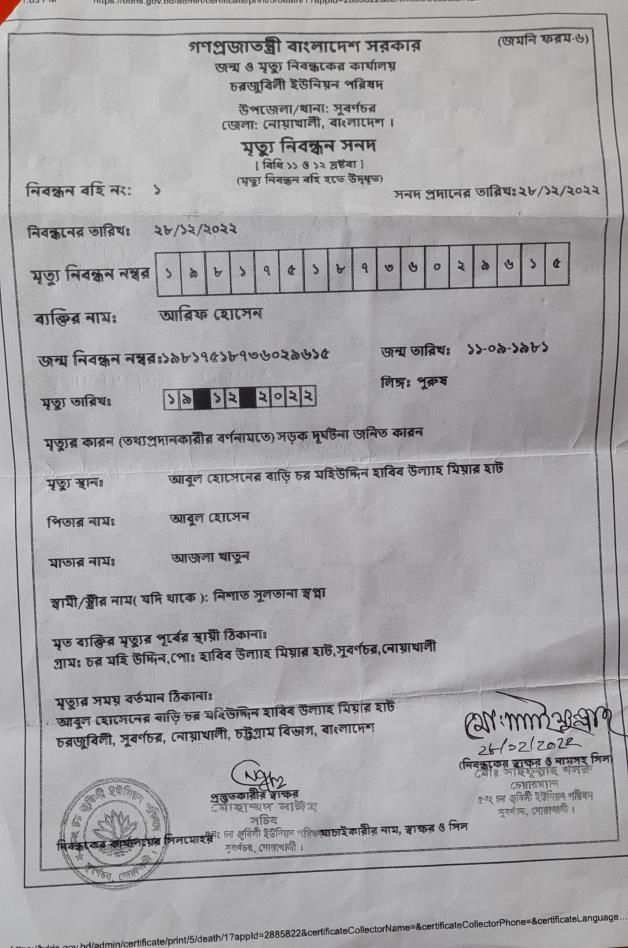 https://bdris.gov.bd/admin/certificate/print/5/death/1?appId=2885822&certificate
গণপ্রজাতন্ত্রী বাংলাদেশ সরকার
(জমনি ফরম-৬)
জন্ম ও মৃত্যু নিবন্ধকের কার্যালয়
চরজুবিলী ইউনিয়ন পরিষদ
উপজেলা/থানা: সুবর্ণচর
জেলা: নোয়াখালী, বাংলাদেশ ।
মৃত্যু নিবন্ধন সনদ
[ বিধি ১১ ও ১২ দ্রষ্টব্য ]
(মৃত্যু নিবন্ধন বহি হতে উদ্ধৃত)
নিবন্ধন বহি নং: ১
সনদ প্রদানের তারিখ:২৮/১২/২০২২
নিবন্ধনের তারিখ: ২৮/১২/২০২২
মৃত্যু নিবন্ধন নম্বর ১ ৯ ৮ ১ ৭ ৫ ১ ৮ ৭ ৬ ০ ২ ৯ ৬ ১ ৫
ব্যক্তির নাম: আরিফ হোসেন
জন্ম নিবন্ধন নম্বর:১৯৮১৭৫১৮৭৬০২৯৬১৫ জন্ম তারিখ: ১১-০৯-১৯৮১
লিঙ্গ: পুরুষ
মৃত্যু তারিখ: ১৯ ১২ ২০২২
মৃত্যুর কারন (তথ্যপ্রদানকারীর বর্ণনামতে) সড়ক দূর্ঘটনা জনিত কারন
মৃত্যু স্থান: আবুল হোসেনের বাড়ি চর মহিউদ্দিন হাবিব উল্যাহ মিয়ার হাট
পিতার নাম: আবুল হোসেন
মাতার নাম: আজনা খাতুন
স্বামী/স্ত্রীর নাম( যদি থাকে ): নিশাত সুলতানা স্বপ্না
মৃত ব্যক্তির মৃত্যুর পূর্বের স্থায়ী ঠিকানা:
গ্রাম: চর মহি উদ্দিন,পো: হাবিব উল্যাহ মিয়ার হাট,সুবর্ণচর,নোয়াখালী
মৃত্যুর সময় বর্তমান ঠিকানা:
আবুল হোসেনের বাড়ি চর মহিউদ্দিন হাবিব উল্যাহ মিয়ার হাট
চরজুবিলী, সুবর্ণচর, নোয়াখালী, চট্টগ্রাম বিভাগ, বাংলাদেশ
(নিবন্ধকের স্বাক্ষর ও নামসহ সিল)
চেয়ারম্যান
৫নং চর জুবিলী ইউনিয়ন পরিষদ
সুবর্ণচর, নোয়াখালী ।
প্রস্তুতকারীর স্বাক্ষর
সচিব
৫নং চর জুবিলী ইউনিয়ন পরিষদ
সুবর্ণচর, নোয়াখালী ।
নিবন্ধকের কার্যালয়ের সিলমোহর
যাচাইকারীর নাম, স্বাক্ষর ও সিল
bd/admin/certificate/print/5/death/1?appId=2885822&certificateCollectorName=&certificateCollectorPhone=&certificateLanguage...